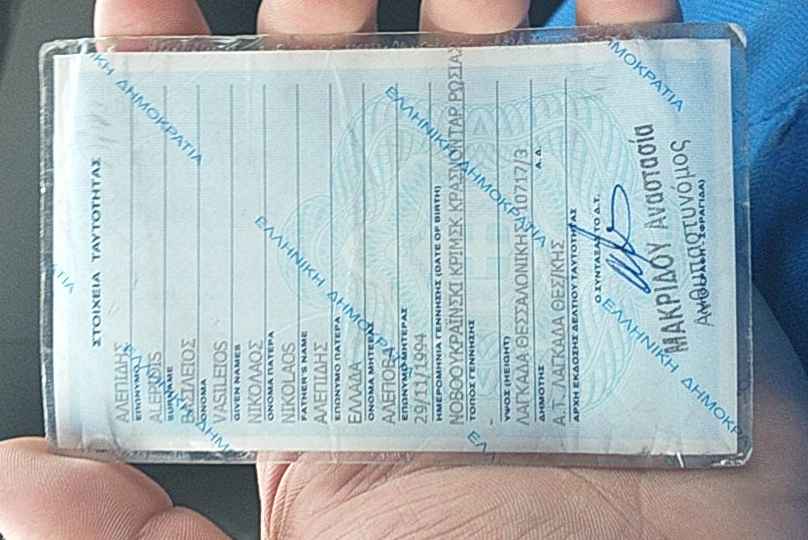 ΣΤΟΙΧΕΙΑ ΤΑΥΤΟΤΗΤΑΣ
ΑΛΕΠΙΔΗΣ
ΕΠΩΝΥΜΟ
ALEPIDIS
SURNAME
ΒΑΣΙΛΕΙΟΣ
ΟΝΟΜΑ
VASILEIOS
GIVEN NAMES
ΝΙΚΟΛΑΟΣ
ΟΝΟΜΑ ΠΑΤΕΡΑ
NIKOLAOS
FATHER'S NAME
ΑΛΕΠΙΔΗΣ
ΕΠΩΝΥΜΟ ΠΑΤΕΡΑ
ΕΛΛΑΔΑ
ΟΝΟΜΑ ΜΗΤΕΡΑΣ
ΑΛΕΠΟΒΑ
ΕΠΩΝΥΜΟ ΜΗΤΕΡΑΣ
29/11/1994
ΗΜΕΡΟΜΗΝΙΑ ΓΕΝΝΗΣΗΣ (DATE OF BIRTH)
ΝΟΒΟΟΥΚΡΑΙΝΣΚΙ ΚΡΙΜΣΚ ΚΡΑΣΝΟΝΤΑΡ ΡΩΣΙΑΣ
ΤΟΠΟΣ ΓΕΝΝΗΣΗΣ
-
ΥΨΟΣ (HEIGHT)
ΛΑΓΚΑΔΑ ΘΕΣΣΑΛΟΝΙΚΗΣ 10717/3
ΔΗΜΟΤΗΣ Α.Δ.
Α.Τ. ΛΑΓΚΑΔΑ ΘΕΣ/ΚΗΣ
ΑΡΧΗ ΕΚΔΟΣΗΣ ΔΕΛΤΙΟΥ ΤΑΥΤΟΤΗΤΑΣ
Ο ΣΥΝΤΑΞΑΣ ΤΟ Δ.Τ.
ΜΑΚΡΙΔΟΥ Αναστασία
Ανθυπαστυνόμος
ΣΦΡΑΓΙΔΑ)
ΕΛΛΗΝΙΚΗ ΔΗΜΟΚΡΑΤΙΑ